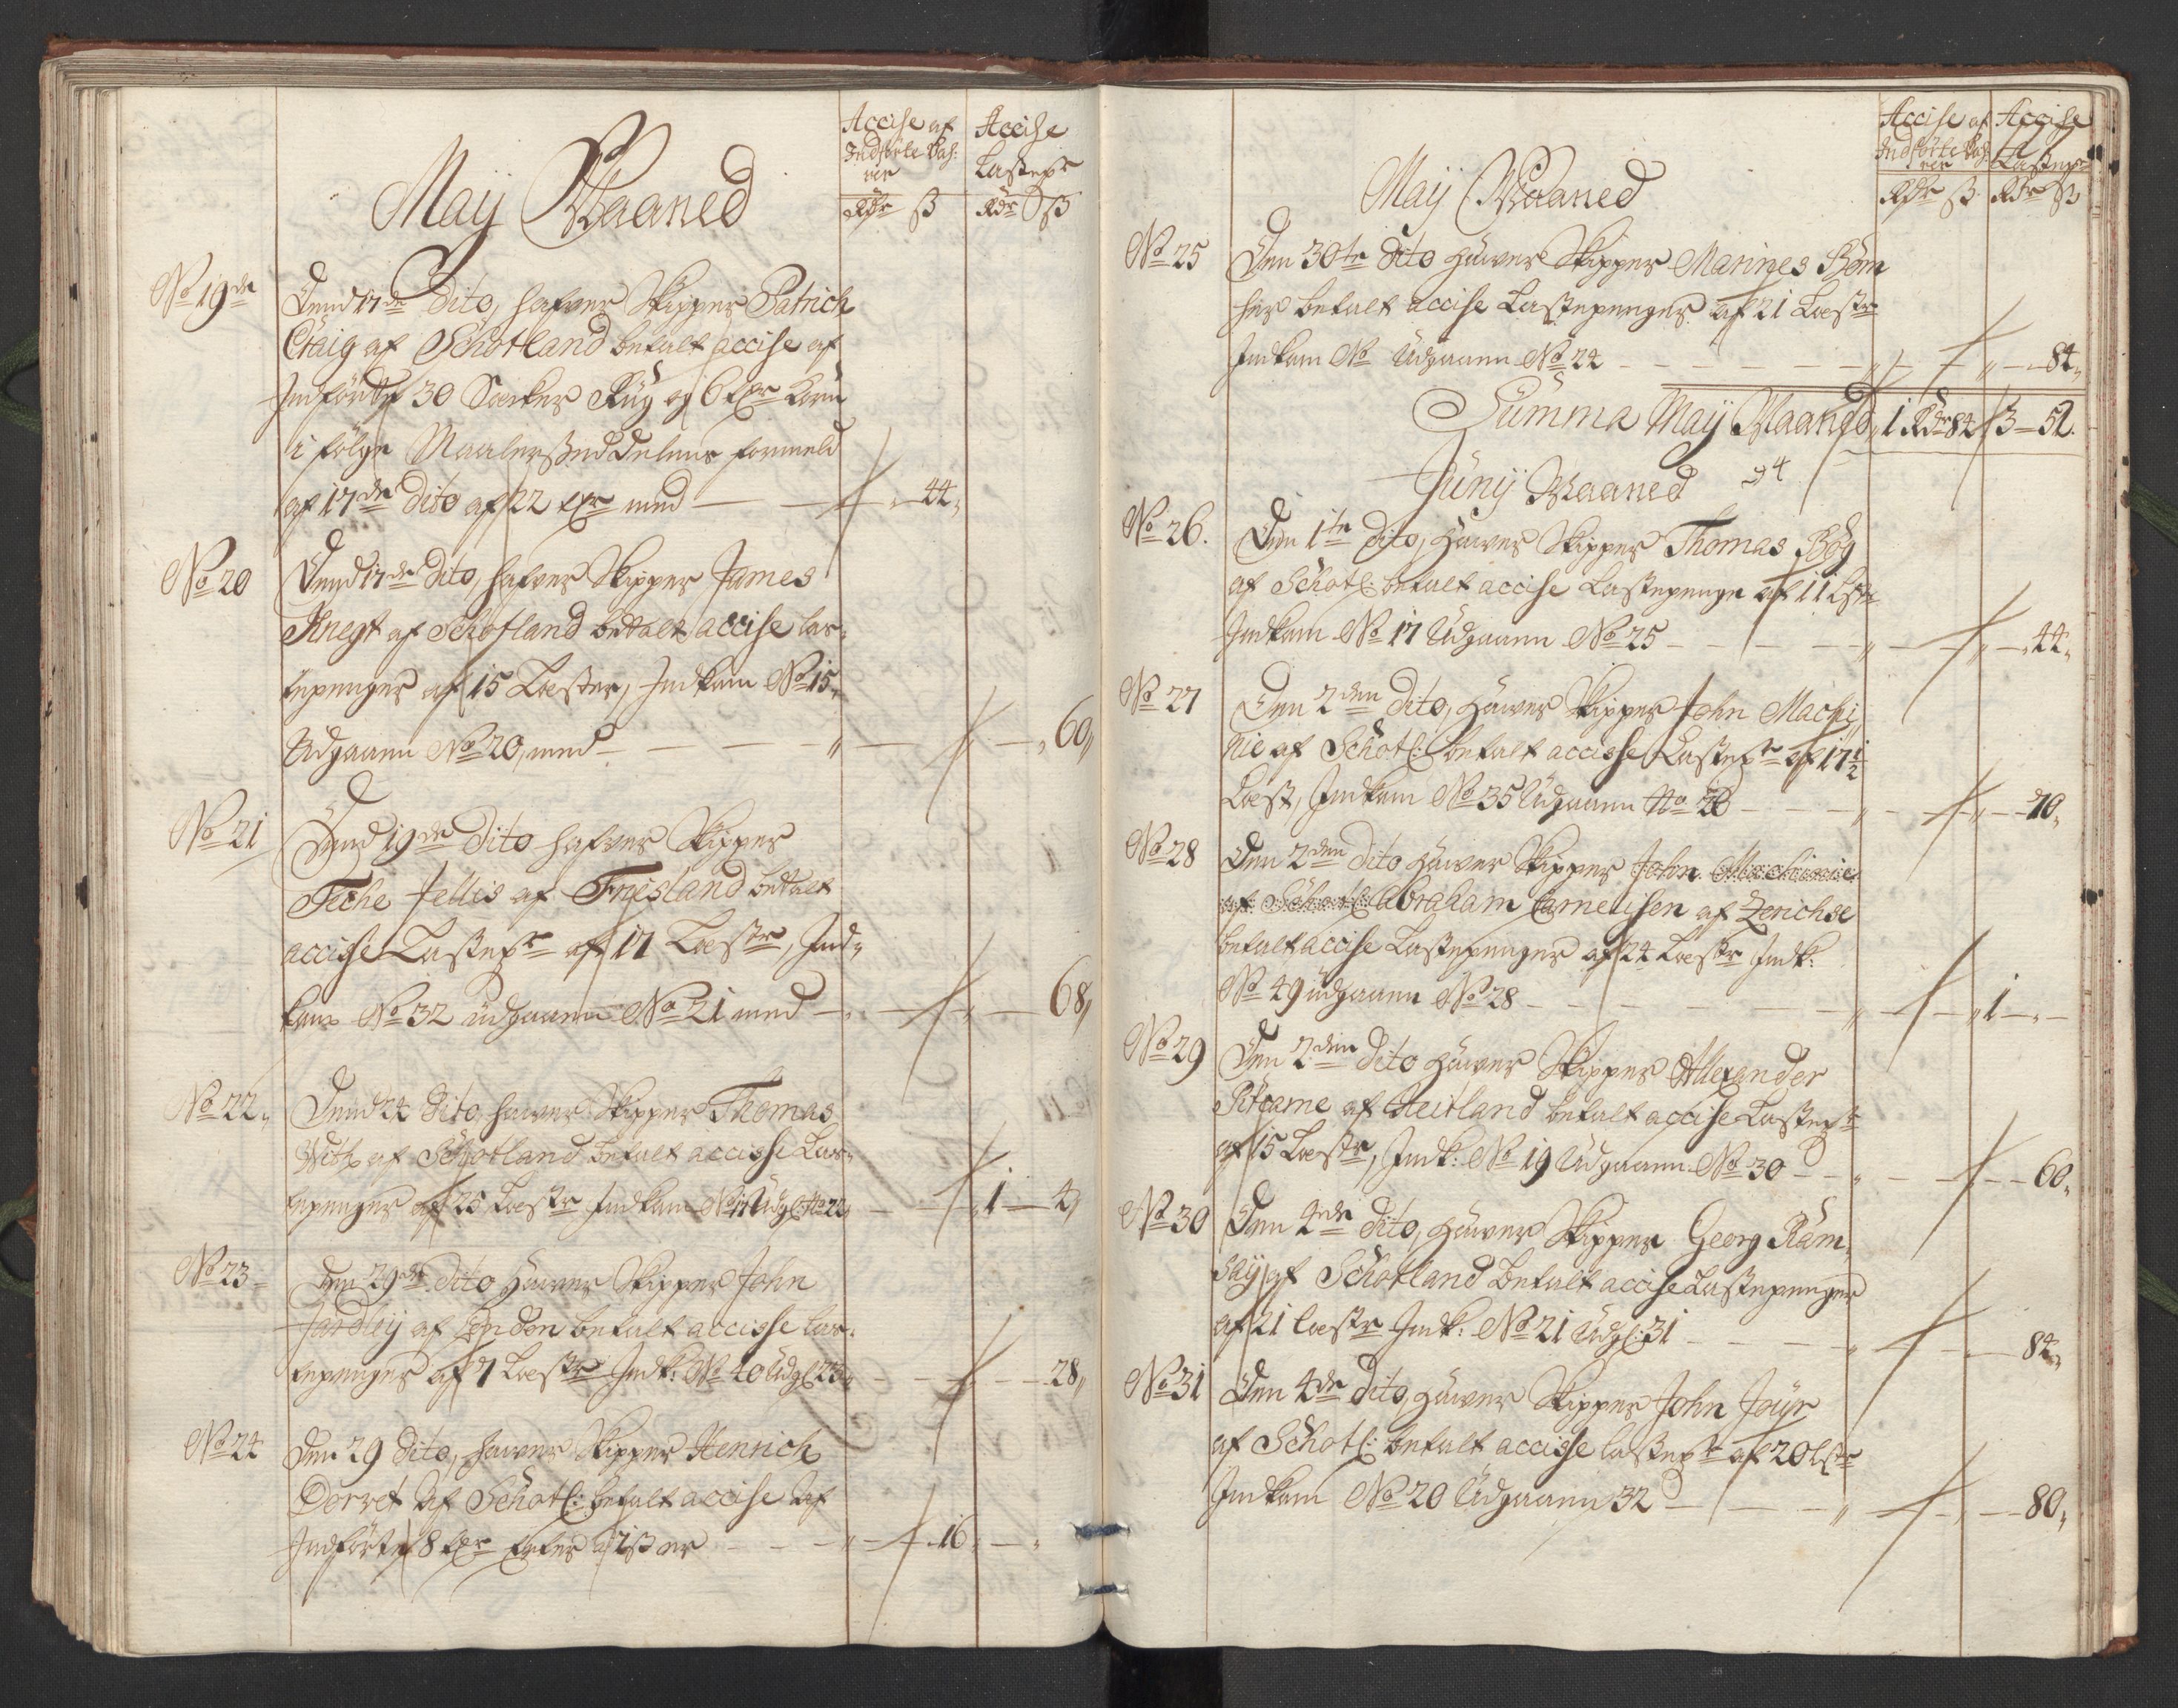 Accise af
Indførte Vah:
rer
Accise
Lastepr
Rdr ß
Rdr ß
Maij Maaned
No 19de
Dend 17de dito, hafver Skipper Patrich
Craig af Schotland betalt accise af
Indførte 30 Søcker Rüg og 6 tr
i følge Maalersseddelens formeld
af 17de dito af 22 tr med 44
No 20
Dend 17de dito, hafver Skipper James
Knegt af Schotland betalt accise las-
tepenger af 15 Læster, Indkam No 15
Udgaaen No 20, med 60
No 21
Dend 19de dito hafver Skipper
Teche Jellis af Friesland betalt
accise Lastepr af 17 Læstr, Ind-
kam No 32 üdgaaen No 21 med 68
No 22
Dend 24 dito, hawer Skipper Thomas
With af Schotland betalt accisse Las-
tepenger af 25 Læstr Indkam No 17 Udg: No 22 1 4
No 23
Den 29de dito Hawer Skipper John
Jardleij af London betalt accisse las-
tepenger af 7 Læstr Indk: No 40 Udg: 23 28
No 24
Den 29 dito, hawer Skipper Henrich
Dorret af Schotl: betalt accise af
Indførte 8 tr a 2 ß er 16
Accise af
Indførte Vah:
rer
Accise
Lastepr
Rdr ß
Rdr ß
Maij Maaned
No 25
Den 30te dito Hawer Skipper Marines Bom
her betalt accise Lastepenger af 21 Læstr
Indkam No Udgaaen No 24 84
Summa Maij Maaned 1 Rdr 84 / 3 52
Junij Maaned 4
No 26.
Den 1te dito, Hawer Skipper Thomas Bog
af Schotl: betalt accise Lastepenge af 11 Lstr
Indkam No 17 Udgaaen No 25 44
No 27
Den 2den dito, Hawer Skipper John Machi
nie af Schotl: betalt accisse Lastepr af 17 1/2
Læst, Indkam No 35 Udgaaen No 26 70
No 28
Den 2den dito Hawer Skipper John Machinie
af Schotl: Abraham Carnelisen af Zerichse
betalt accise Lastepenger af 24 Læstr Indk:
No 49 üdgaaen No 28 1
No 29
Den 2den dito Hawer Skipper Allexander
Pitcarne af Heitland betalt accise Lastepr
af 15 Læstr, Indk: No 19 Udgaaen No 30 60
No 30
Den 2den dito, Hawer Skipper Georg Ram-
saij af Schotland betalt accise Lastepenger
af 21 læstr Indk: No 21 Udg: 31 84
No 31
Den 4de dito, Hawer Skipper John Joyr
af Schotl: betalt accisse lastepr af 20 lstr
Indkam No 20 Udgaaen 32 80